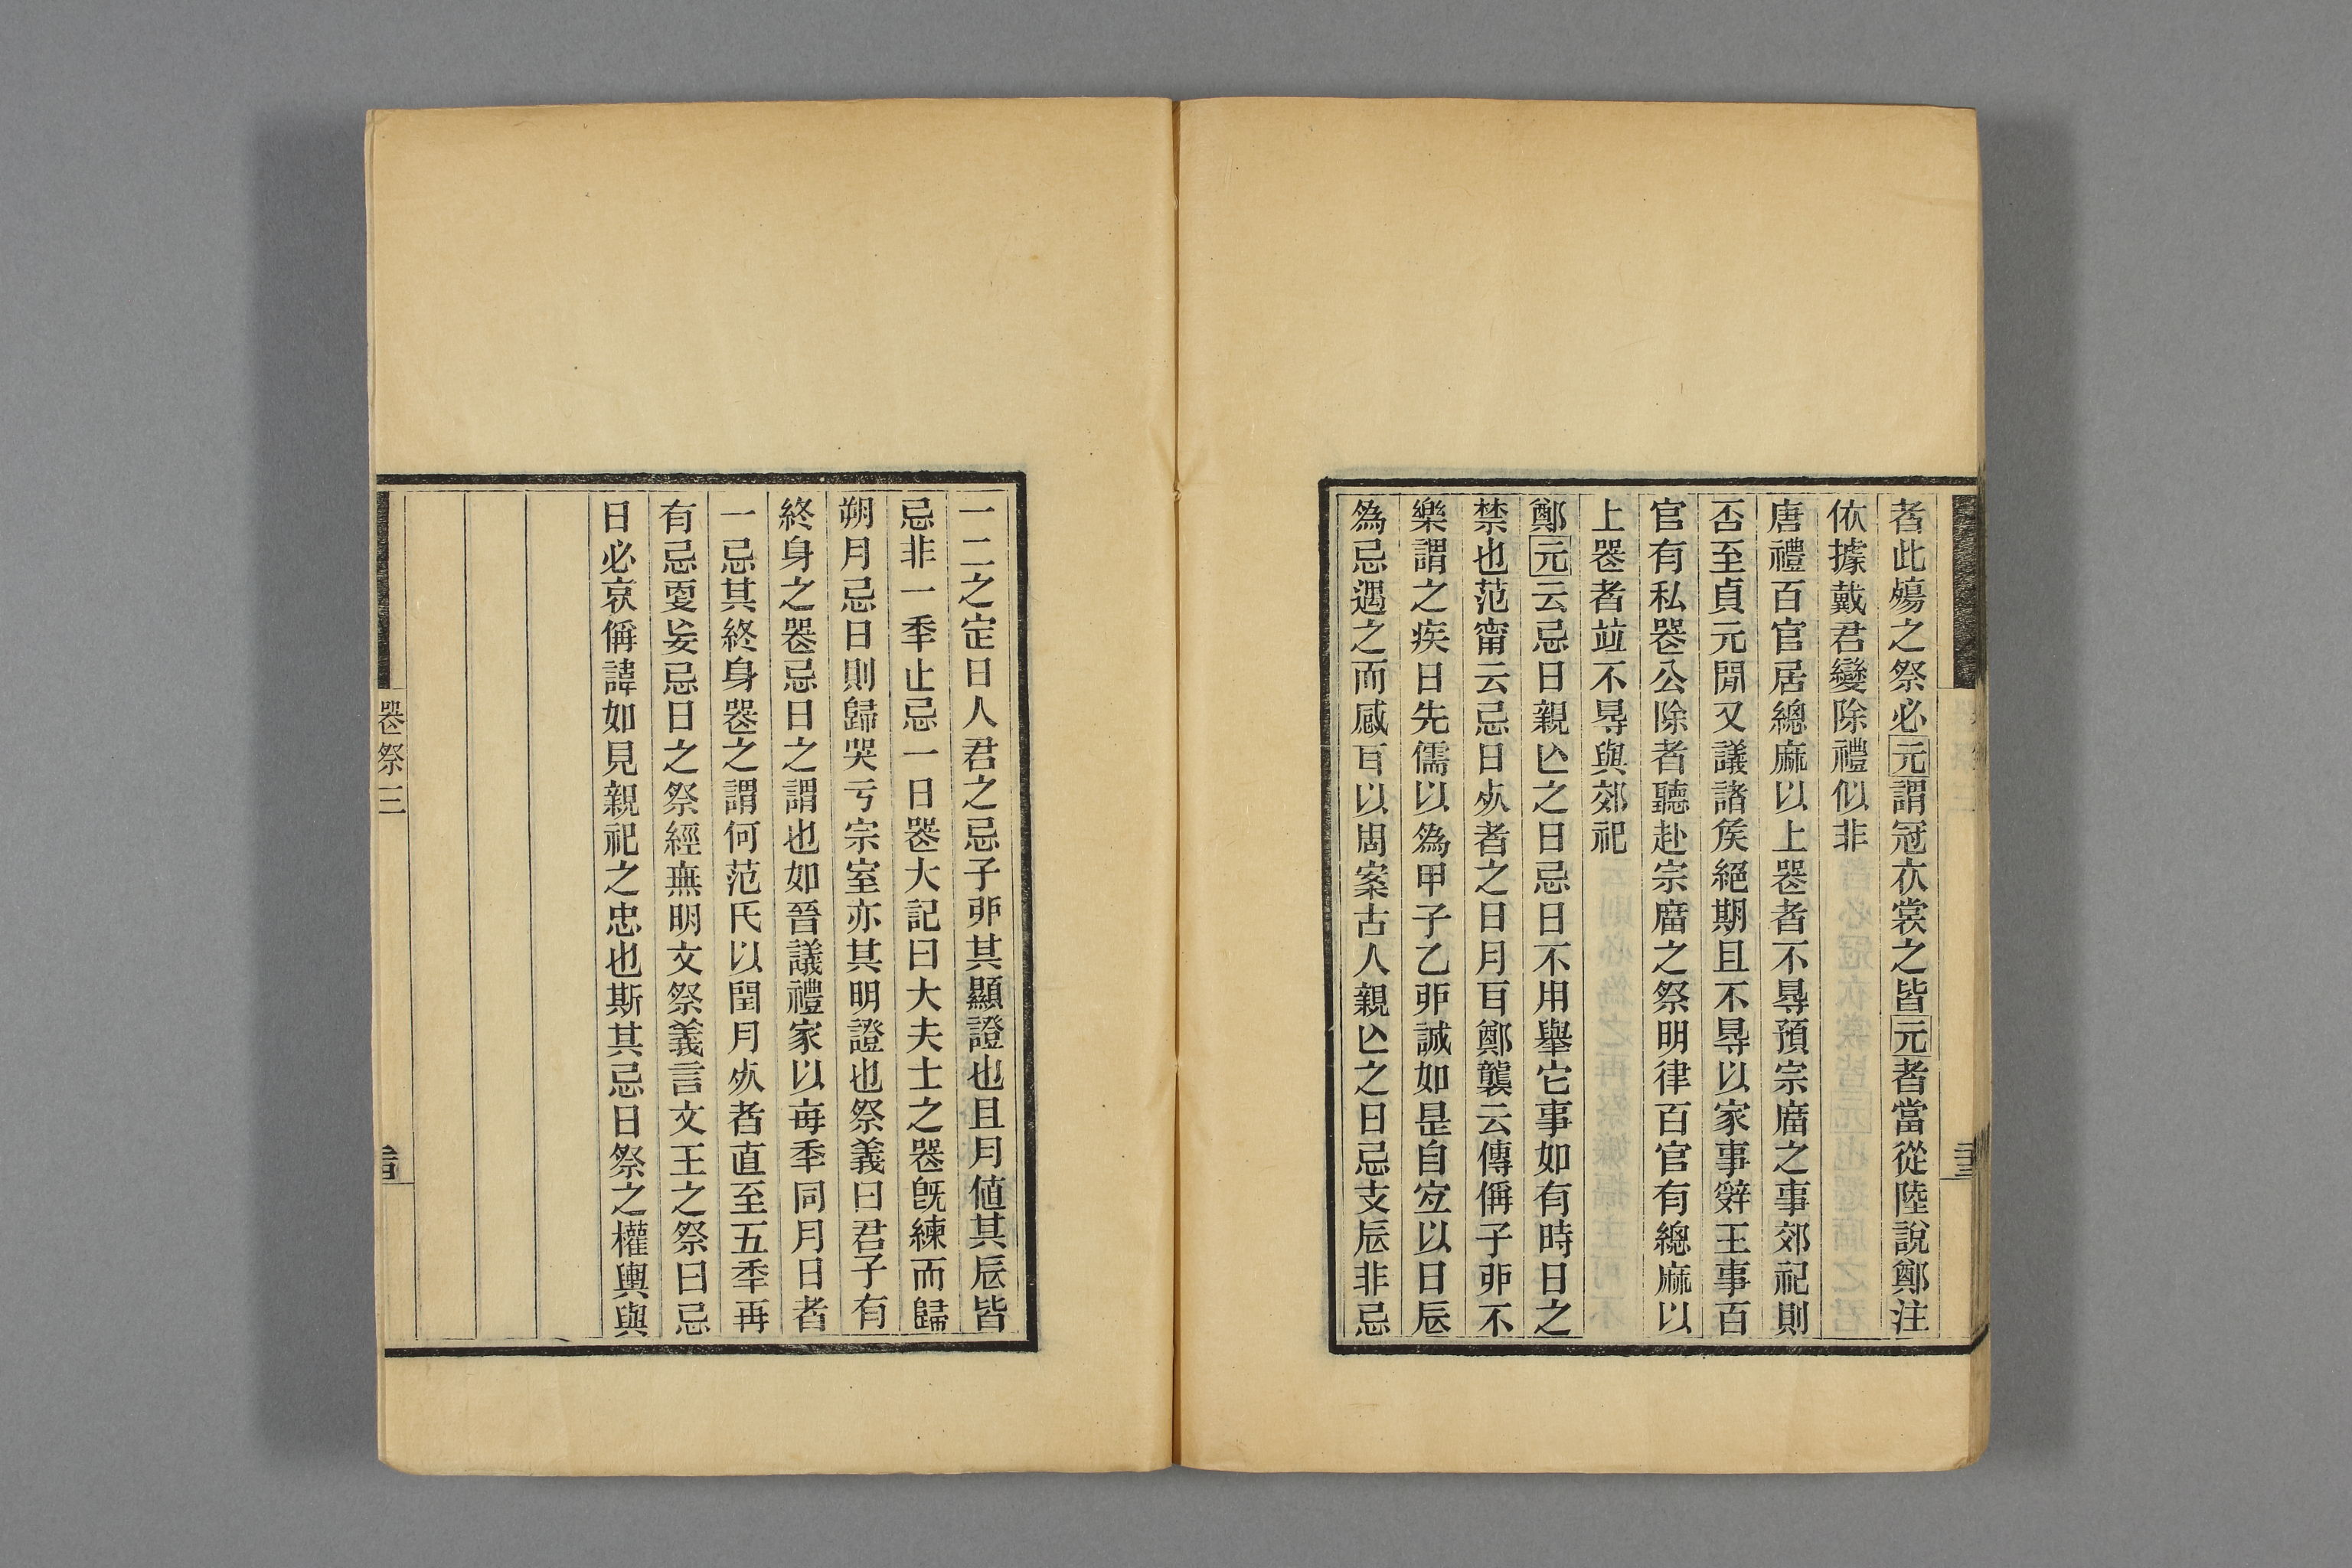 者此殤之祭必元謂冠衣裳之皆元者當從陸說鄭注
依據戴君變除禮似非
唐禮百官居緦麻以上喪者不㝵預宗廟之事郊祀則
否至貞元閒又議諸矦絕期且不㝵以家事辤王事百
官有私喪公除者聽赴宗廟之祭明律百官有緦麻以
上喪者竝不㝵與郊祀
鄭元云忌日親亾之日忌日不用舉它事如有時日之
禁也范甯云忌日㱙者之日月百鄭襲云傳偁子丣不
樂謂之疾日先儒以為甲子乙丣誠如是自宐以日辰
為忌遇之而感百以周案古人親亾之日忌支辰非忌
一二之定日人君之忌子丣其顯證也且月値其辰皆
忌非一秊止忌一日喪大記曰大夫士之喪旣練而歸
朔月忌日則歸哭亏宗室亦其明證也祭義曰君子有
終身之喪忌日之謂也如晉議禮家以每秊同月日者
一忌其終身喪之謂何范氏以閏月㱙者直至五秊再
有忌叓妄忌日之祭經無明文祭義言文王之祭曰忌
日必哀偁諱如見親祀之忠也斯其忌日祭之權輿與
喪祭三